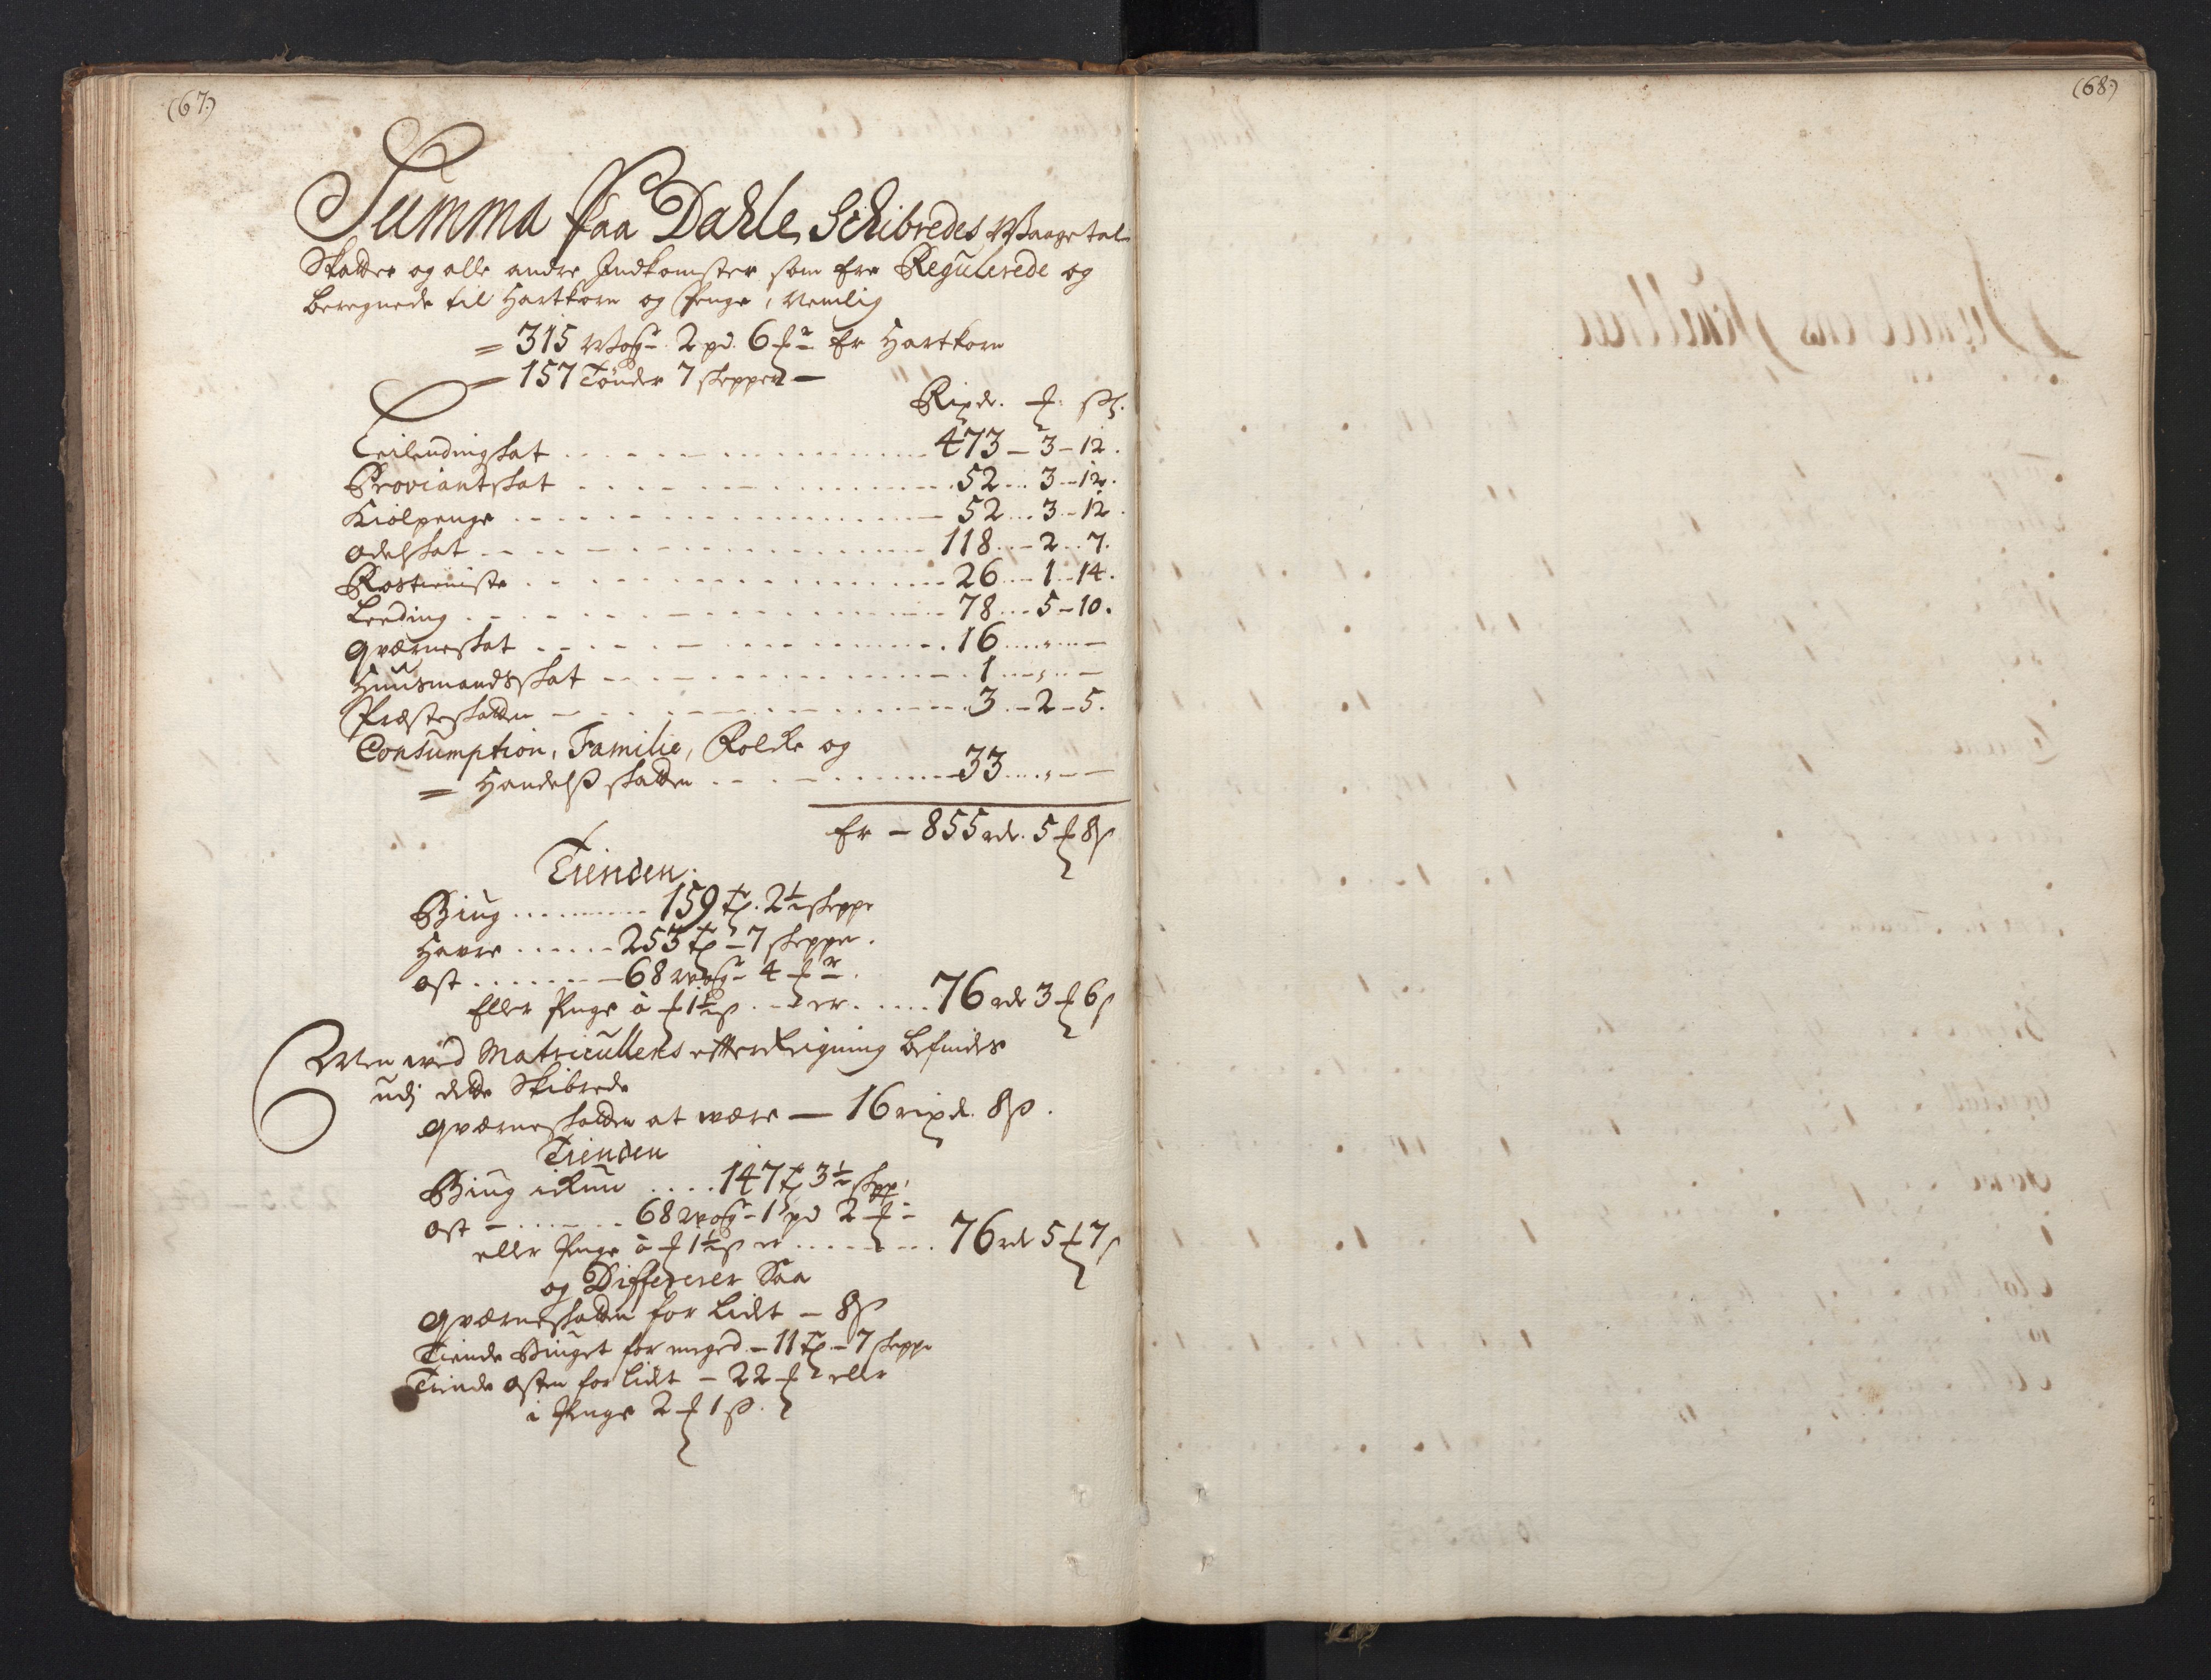 (67.)
Summa paa Dahle Schibredes Waagetal
Skatter og alle andre Indkomster som ere Regulerede og
beregnede til Hartkorn og Penge, Nemlig
= 315 Wog 2 pd. 6 ℔r Er Hartkorn
= 157 Tønder 7 skepper —
Rixdr. ℔. ß.
Leilendingskat . . . 473 – 3 – 12.
Proviantskat . . . 52 – 3 – 12.
Kiolpenge . . . 52 – 3 – 12.
Odelskat . . . 118 – 2 – 7.
Rostieniste . . . 26 – 1 – 14.
Leeding . . . 78 – 5 – 10.
Qværneskat . . . 16 – „ –
Huusmandsskat . . . 1 – „ –
Præsteskatten . . . 3 – 2 – 5.
Consumption, Familie, Folche og
= Handelß skatten . . . 33 – „ –
Er – 855 rdr. 5 ℔ 8 ß
Tienden.
Biug . . . 159 tr. 2½ skeppe
Havre . . . 253 tr – 7 skepper.
Ost . . . 68 wog 4 ℔r.
Eller Penge à ℔ 1½ ß er . . . 76 rdr 3 ℔ 6 ß
Men wed Matricullens efterReigning befindes
udj dette Skibrede
Qværneskatten at være — 16 rixdr. 8 ß.
Tienden
Biug ickun . . . 147 tr 3½ skpp.
Ost – . . . 68 wog 1 pd 2 ℔r
eller Penge à ℔ 1½ ß er . . . 76 rdr 5 ℔ 7 ß
og Differerer Saa
Qværneskatten for lidt – 8 ß
Tiende Biuget for meged – 11 tr. – 7 skeppe
Tiende Osten for lidt – 22 ℔ eller
i Penge 2 ℔ 1 ß.
(68.)